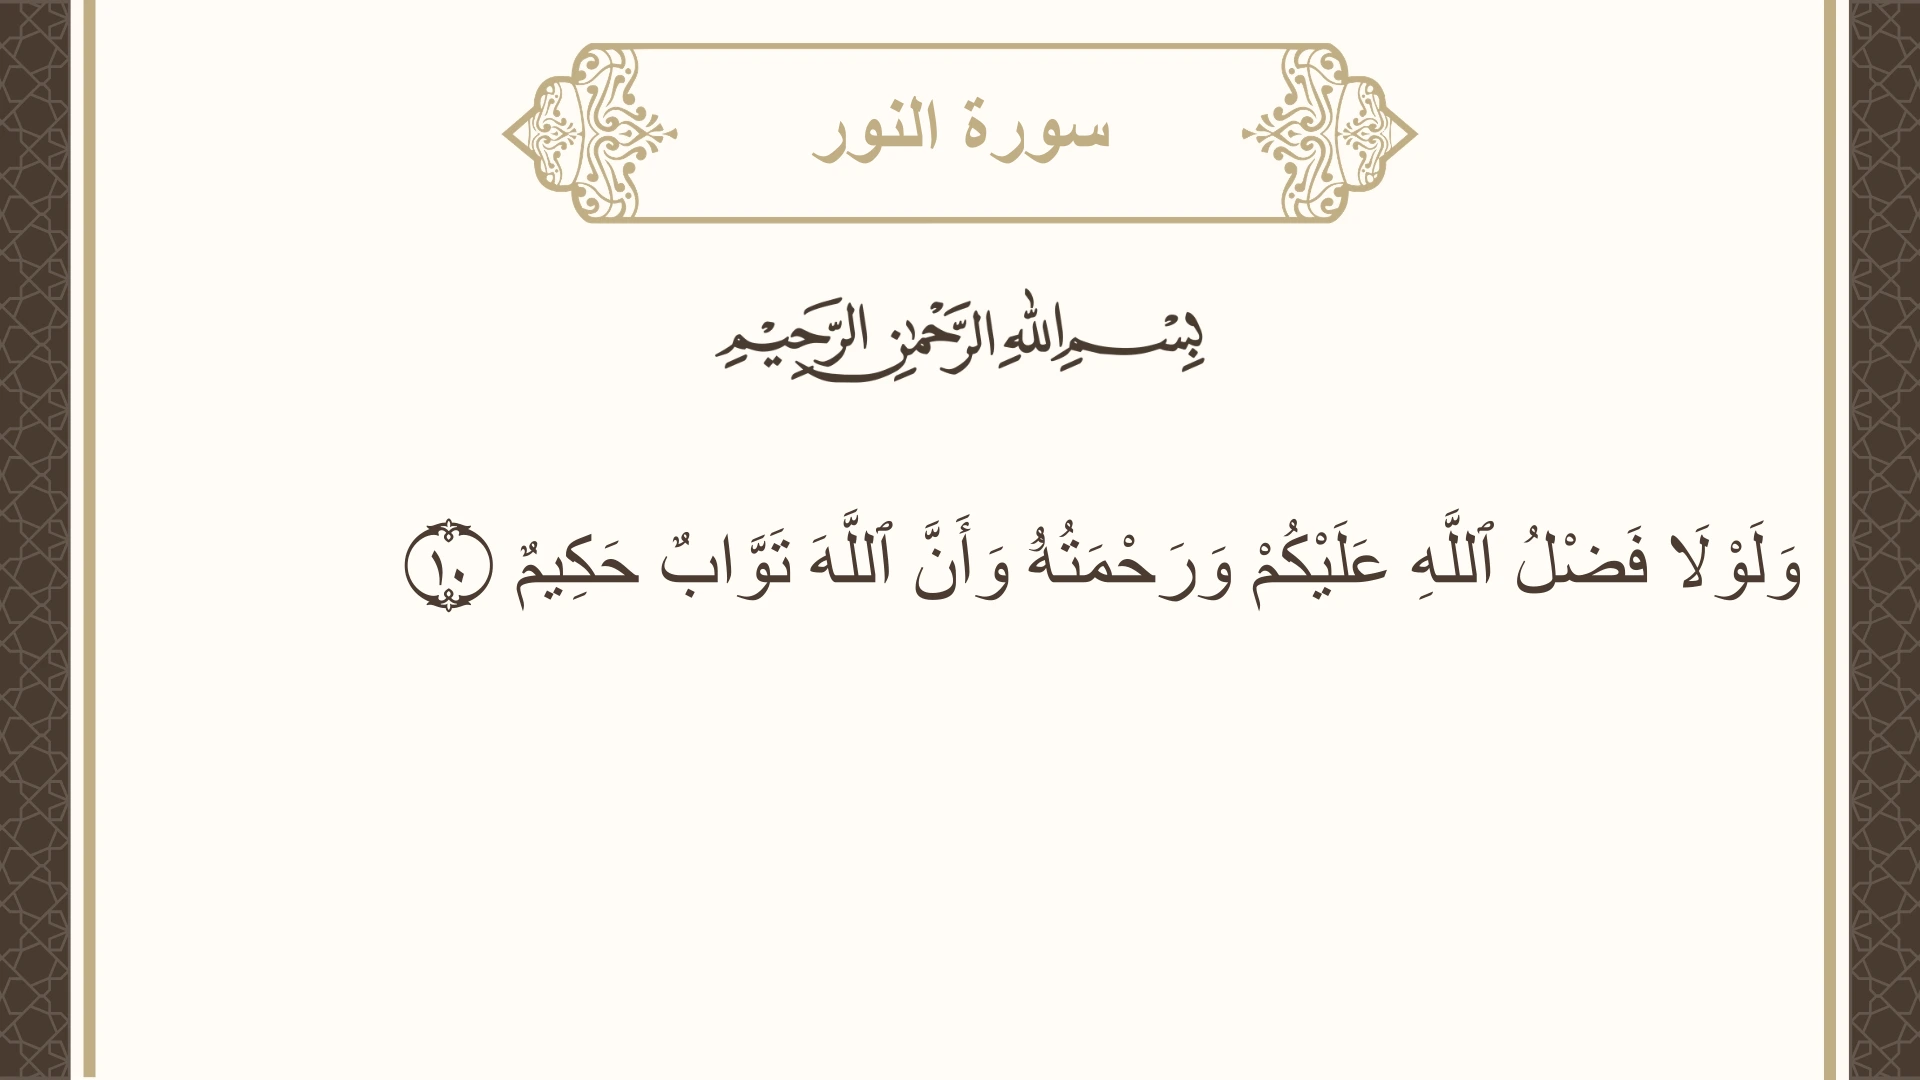 سورة النور
بِسْمِ اللهِ الرَّحْمٰنِ الرَّحِيْمِ
وَلَوْلَا فَضْلُ ٱللَّهِ عَلَيْكُمْ وَرَحْمَتُهُۥ وَأَنَّ ٱللَّهَ تَوَّابٌ حَكِيمٌ ١٠